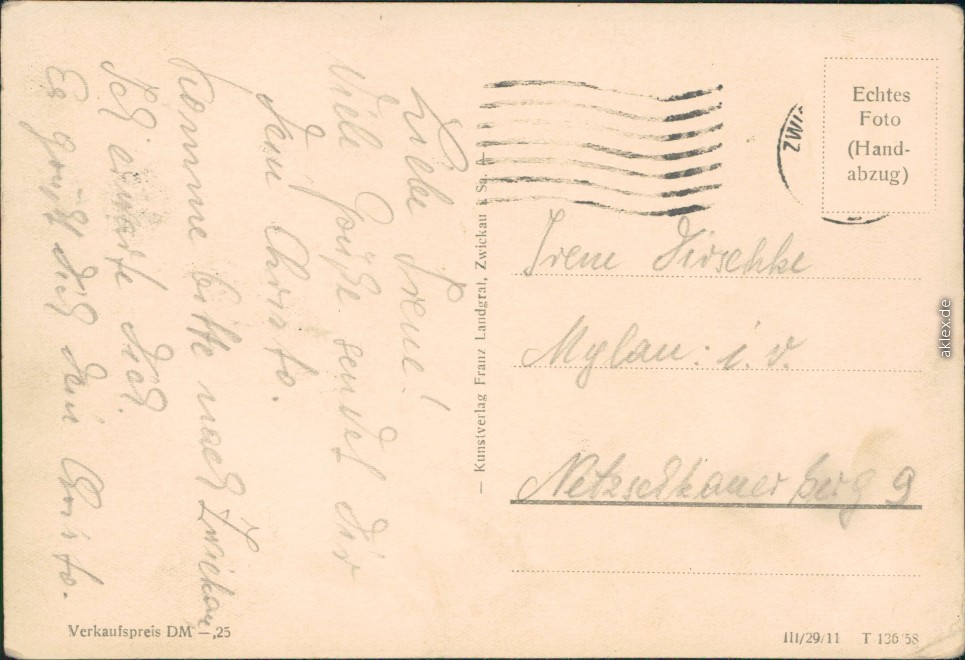 Liebe Irene!
Viele Grüße sendet dir
dein Christo.
Komme bitte nach Zwickau
Ich warte dich.
Es grüßt dich dein Christo.
— Kunstverlag Franz Landgraf, Zwickau i. Sa. —
ZWI
Echtes
Foto
(Hand-
abzug)
Irene Hirschke
Mylau i. V.
Netzschkauer berg 9
Verkaufspreis DM —,25
III/29/11 T 136/58
aklex.de